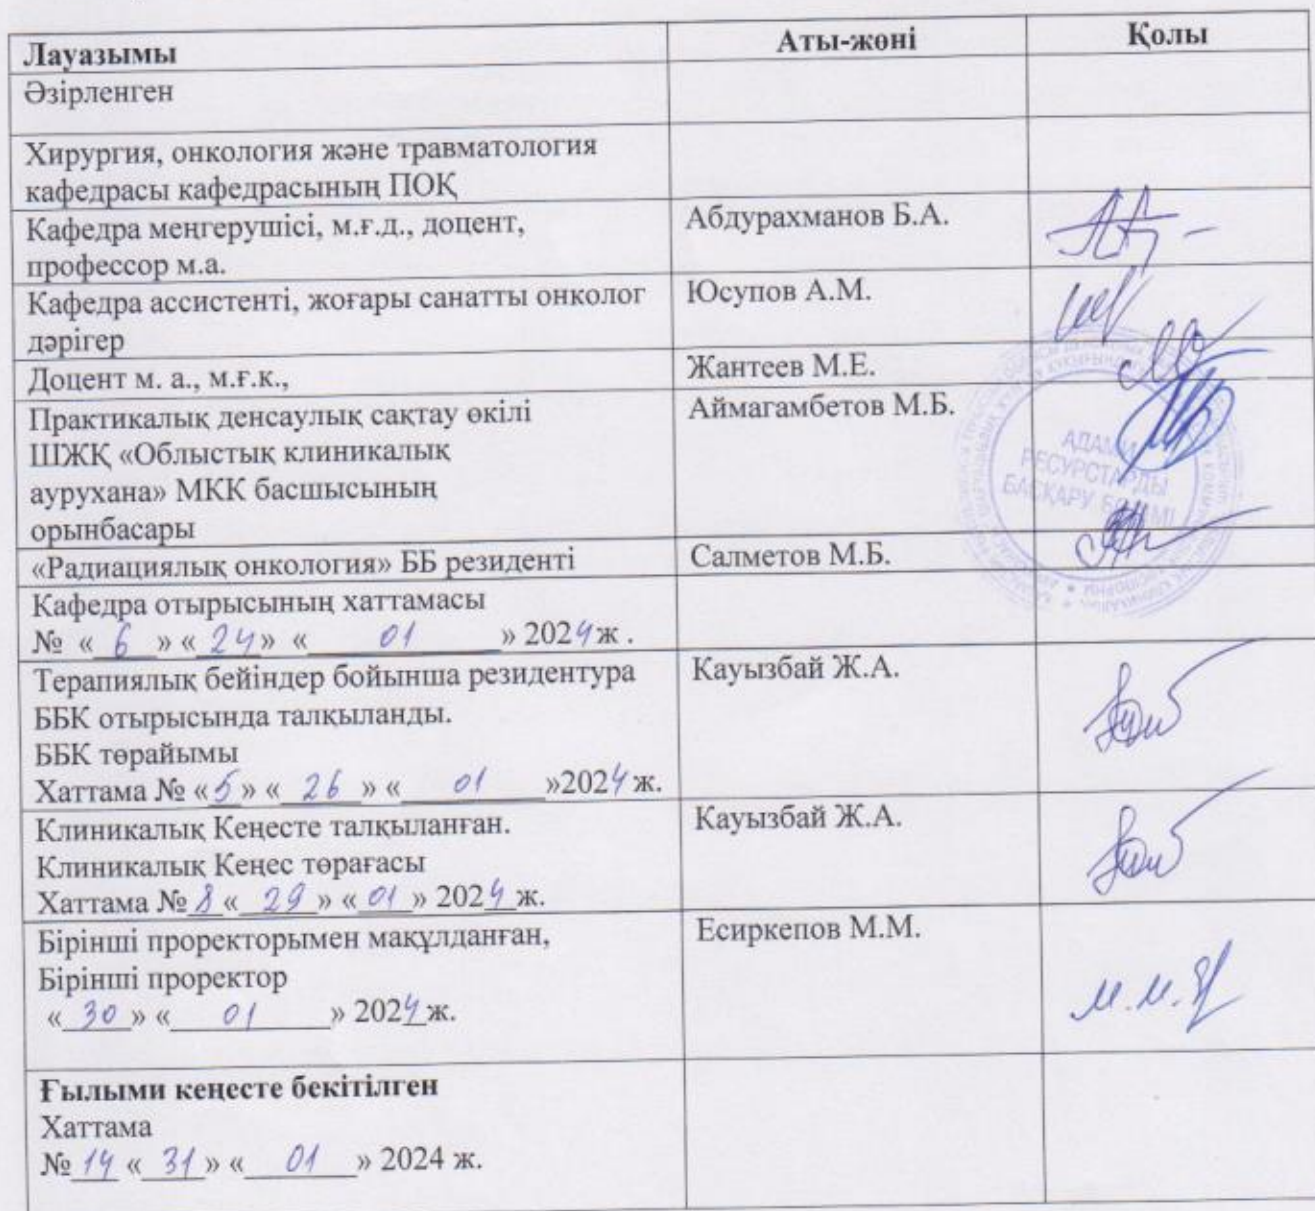 Лауазымы Аты-жөні Қолы
Әзірленген
Хирургия, онкология және травматология
кафедрасы кафедрасының ПОҚ
Кафедра меңгерушісі, м.ғ.д., доцент, Абдурахманов Б.А.
профессор м.а.
Кафедра ассистенті, жоғары санатты онколог Юсупов А.М.
дәрігер
Доцент м. а., м.ғ.к., Жантеев М.Е.
Практикалық денсаулық сақтау өкілі Аймагамбетов М.Б.
ШЖҚ «Облыстық клиникалық
аурухана» МКК басшысының
орынбасары
АДАМИ
РЕСУРСТАРДЫ
БАСҚАРУ БӨЛІМІ
«Радиациялық онкология» ББ резиденті Салметов М.Б.
Кафедра отырысының хаттамасы
№ «6» «24» «01» 2024 ж .
Терапиялық бейіндер бойынша резидентура Кауызбай Ж.А.
ББК отырысында талқыланды.
ББК төрайымы
Хаттама № «5» «26» «01»2024 ж.
Клиникалық Кеңесте талқыланған. Кауызбай Ж.А.
Клиникалық Кеңес төрағасы
Хаттама № 8 «29» «01» 2024 ж.
Бірінші проректорымен мақұлданған, Есиркепов М.М.
Бірінші проректор
«30» «01» 2024 ж.
Ғылыми кеңесте бекітілген
Хаттама
№ 14 «31» «01» 2024 ж.